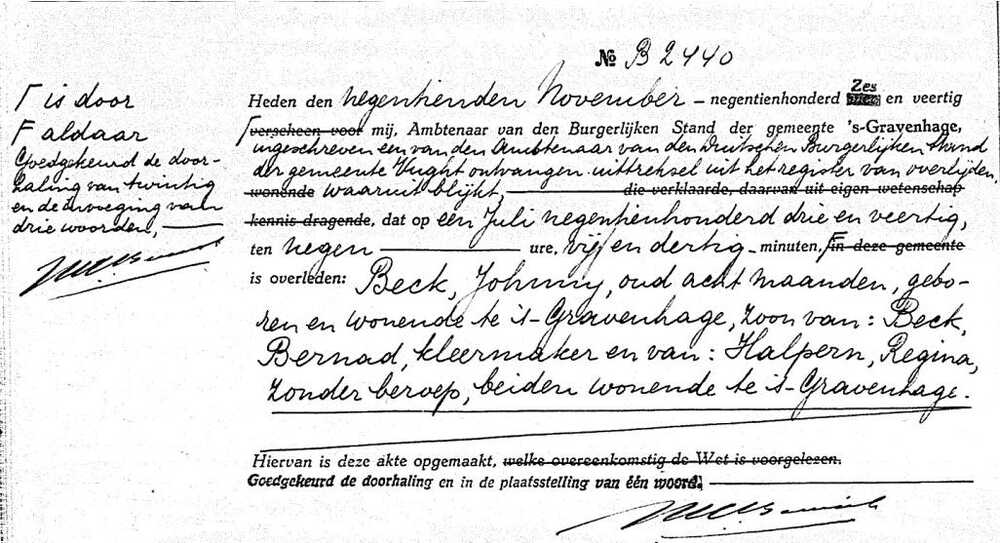 № B 2440
Γ is door
F aldaar
Goedgekeurd de door-
haling van twintig
en de invoeging van
drie woorden,
Heden den negentienden November – negentienhonderd Zes en veertig
Γ verscheen voor mij, Ambtenaar van den Burgerlijken Stand der gemeente 's-Gravenhage,
ingeschreven een van den Ambtenaar van den Duitschen Burgerlijken Stand
der gemeente Vught ontvangen uittreksel uit het register van overlijden,
wonende waaruit blijkt, die verklaarde, daarvan uit eigen wetenschap
kennis dragende, dat op één Juli negentienhonderd drie en veertig,
ten negen ure, vijf en dertig – minuten, F in deze gemeente
is overleden: Beck, Johnny, oud acht maanden, gebo-
ren en wonende te 's-Gravenhage, zoon van: Beck,
Bernad, kleermaker en van: Halpern, Regina,
zonder beroep, beiden wonende te 's-Gravenhage.
Hiervan is deze akte opgemaakt, welke overeenkomstig de Wet is voorgelezen.
Goedgekeurd de doorhaling en in de plaatsstelling van één woord.